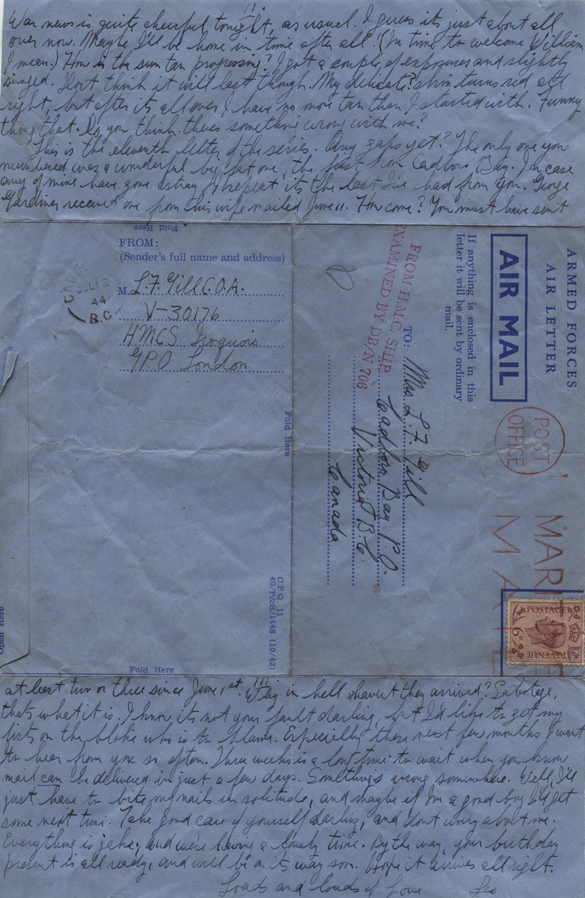 War news is quite cheerful tonight, as usual. I guess it's just about all
over now. Maybe I'll be home in time after all! (In time to welcome William
I mean.) How is the sun tan progressing? I got a couple of exposures and slightly
singed. I don't think it will last though. My delicate? skin turns red all
right, but after it's all over, I have no more tan than I started with. Funny
thing that. Do you think there's something wrong with me?
This is the eleventh letter of the series. Any gaps yet? The only one you
numbered was a wonderful big fat one, the first from Cadboro Bay. In case
any of mine have gone astray I repeat it's the last I've had from you. George
Gardiner received one from his wife mailed June 11. How come? You must have sent
Fold Here
FROM:
(Sender's full name and address)
L.F. Gill C.O.A.
V-30176
HMCS Iroquois
GPO London
JUL 2
44
B.C.
Fold Here
C.F.Q 11
40/PoS/1448 (10/42)
Fold Here
Open Here
ARMED FORCES
AIR LETTER
AIR MAIL
If anything is enclosed in this
letter it will be sent by ordinary
mail.
TO:
Mrs. L.F. Gill
Cadboro Bay P.O.
Victoria B.C.
Canada
FROM H.M.C. SHIP
EXAMINED BY DB/N 706
POST
OFFICE
POSTAGE
REVENUE
6D
at least two or three since June 1st. Why in hell haven't they arrived? Sabotage,
that's what it is. I know it's not your fault darling, but I'd like to get my
fists on the bloke who is to blame. Especially these next few months I want
to hear from you so often. Three weeks is a long time to wait when you know
mail can be delivered in just a few days. Something's wrong somewhere. Well, I'll
just have to bite my nails in solitude, and maybe if I'm a good boy I'll get
some next time. Take good care of yourself darling, and don't worry about me.
Everything is jake, and we're having a lovely time. By the way, your birthday
present is all ready, and will be on its way soon. Hope it arrives all right.
Loads and loads of Love Les